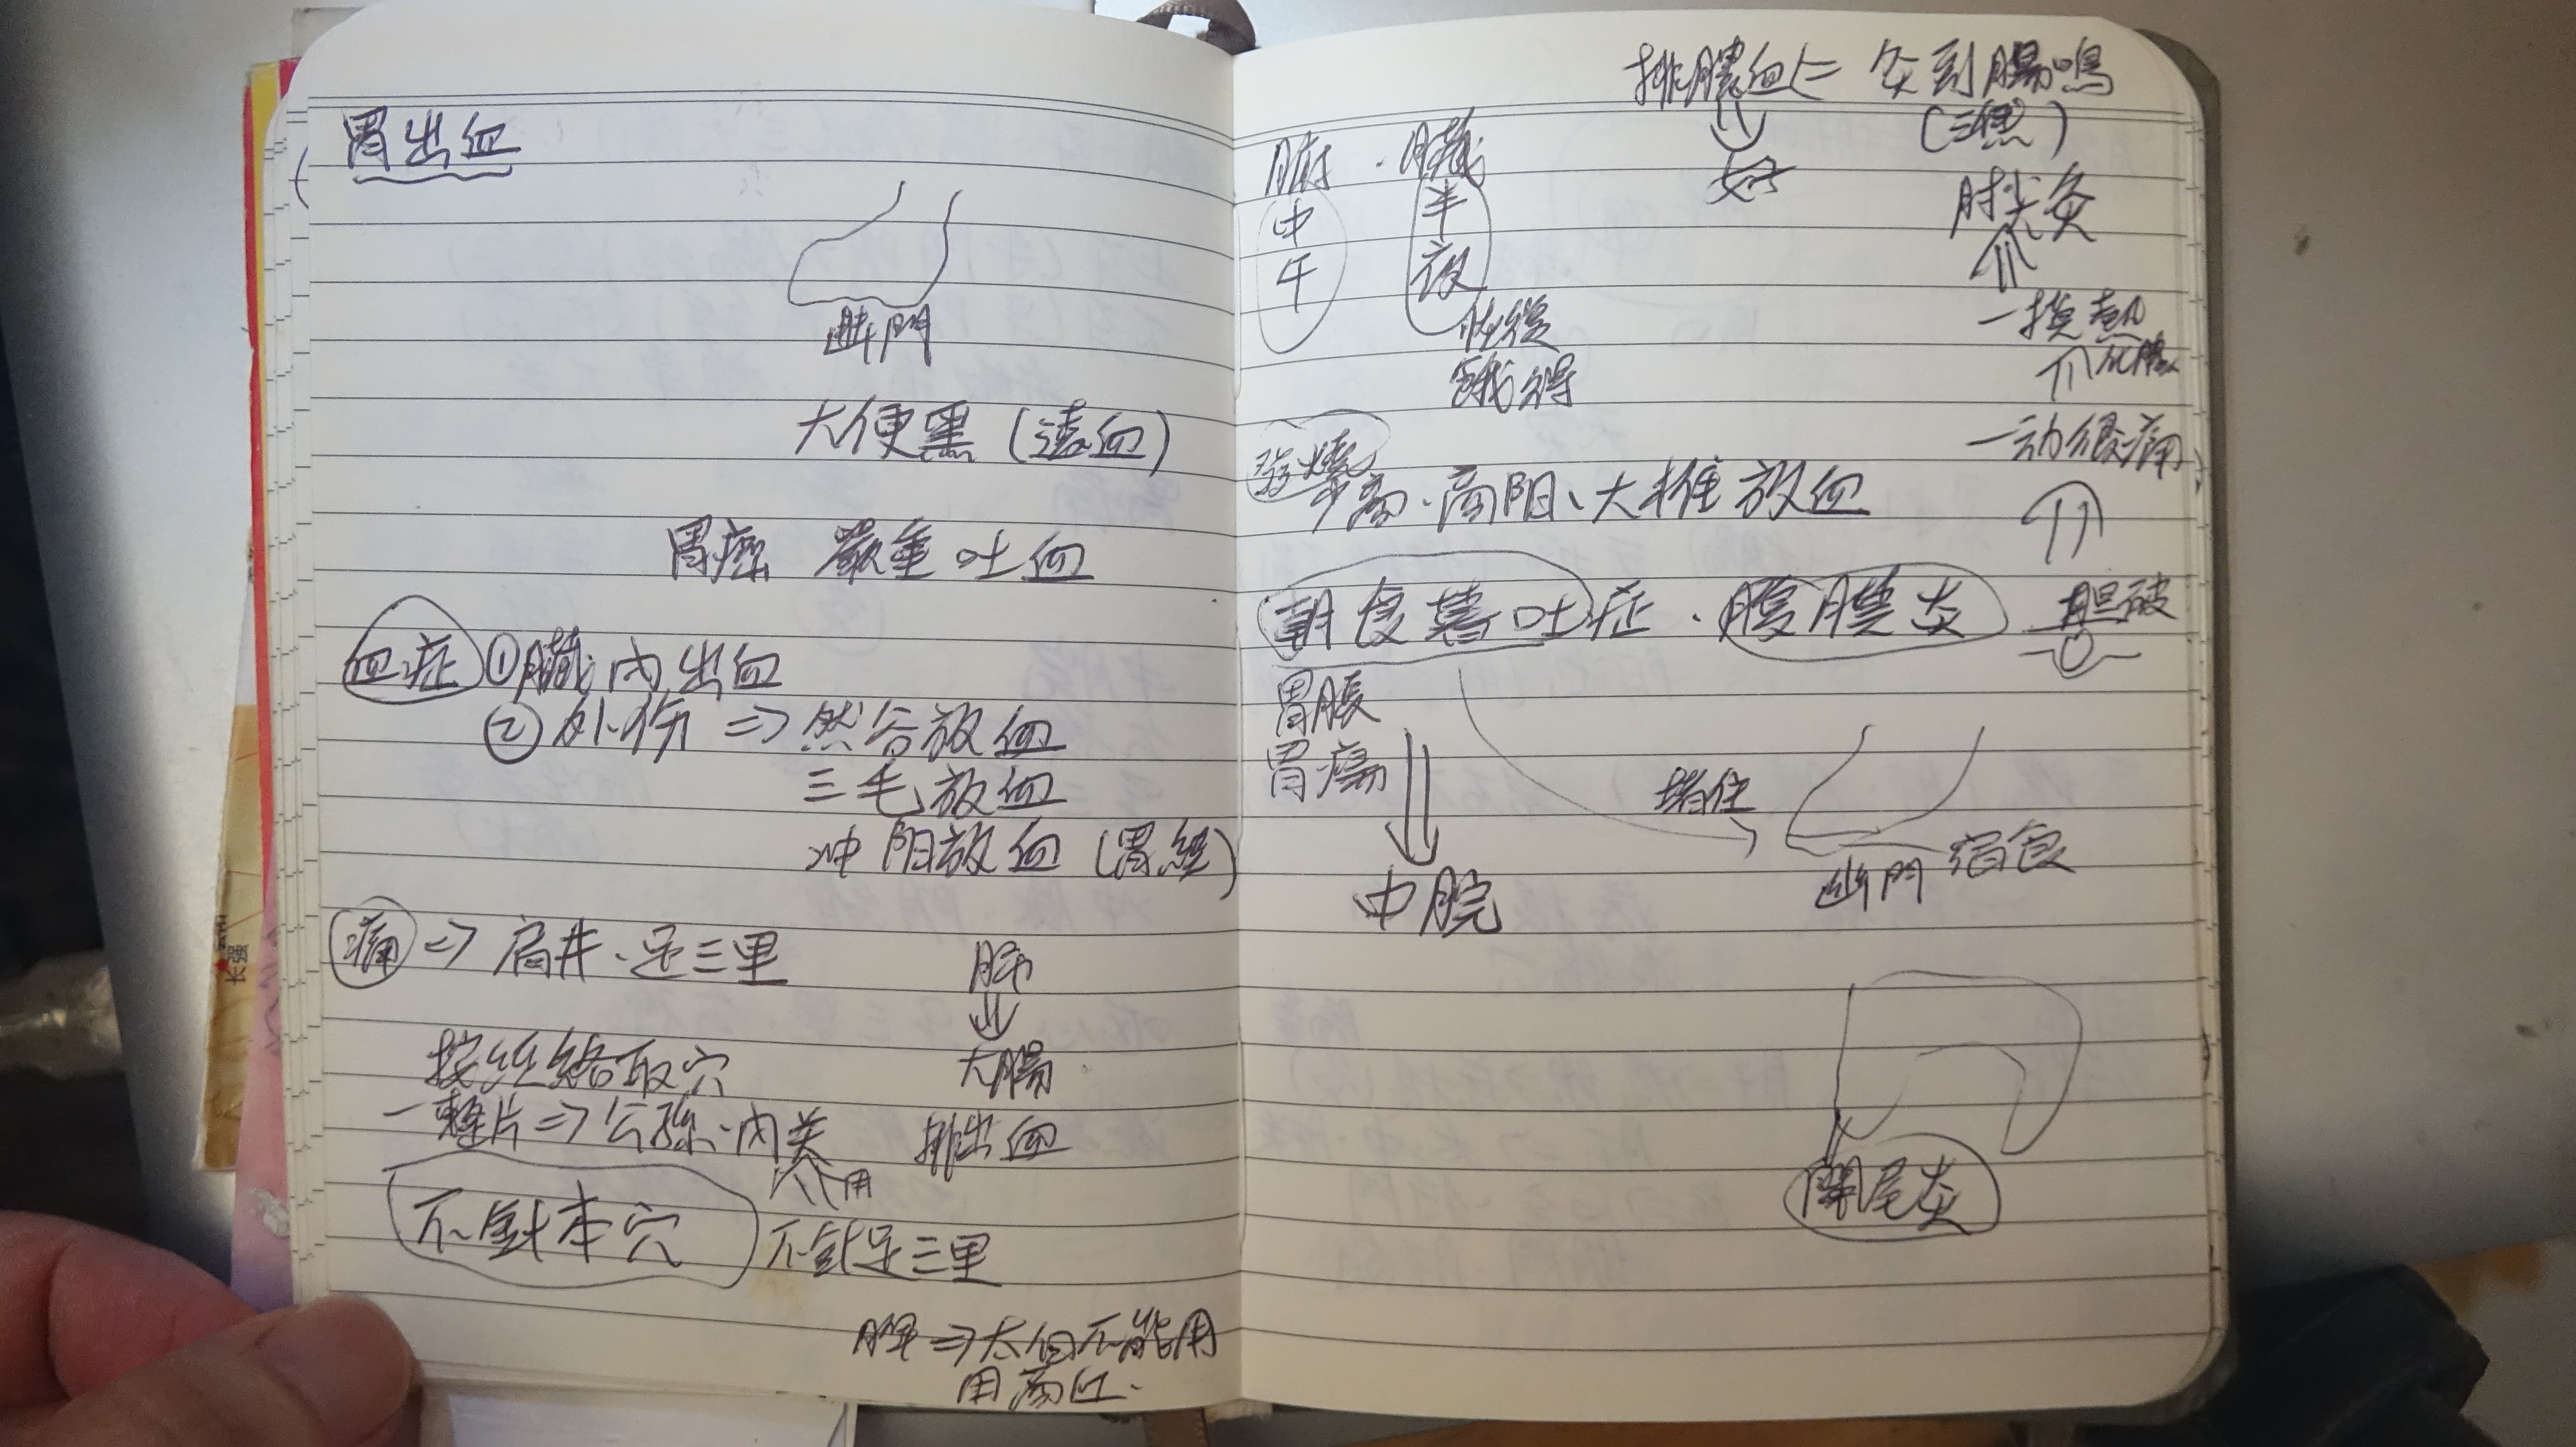 胃出血
幽門
大便黑(遠血)
胃癌 嚴重吐血
血症 ①臟內出血
②外伤 ⇒ 然谷放血
三毛放血
冲阳放血(胃經)
痛 ⇒ 肩井.足三里
肺
⇓
大腸
排出血
按經絡取穴
一整片 ⇒ 公孫.內关
⇑用
不針本穴
不針足三里
脾 ⇒ 太白不能用
用商丘.
排膿血 ⇐ 灸到腸鳴
⇓
好
腑.臟
中午
半夜
恢復
餓得
發燒
少商.商阳、大椎放血
朝食暮吐症.腹膜炎
胃脹
胃瘍
⇓
中脘
堵住
幽門 宿食
灸
⇑
一摸熱
⇑化膿
一动很痛
⇑
胆破
闌尾炎
长强